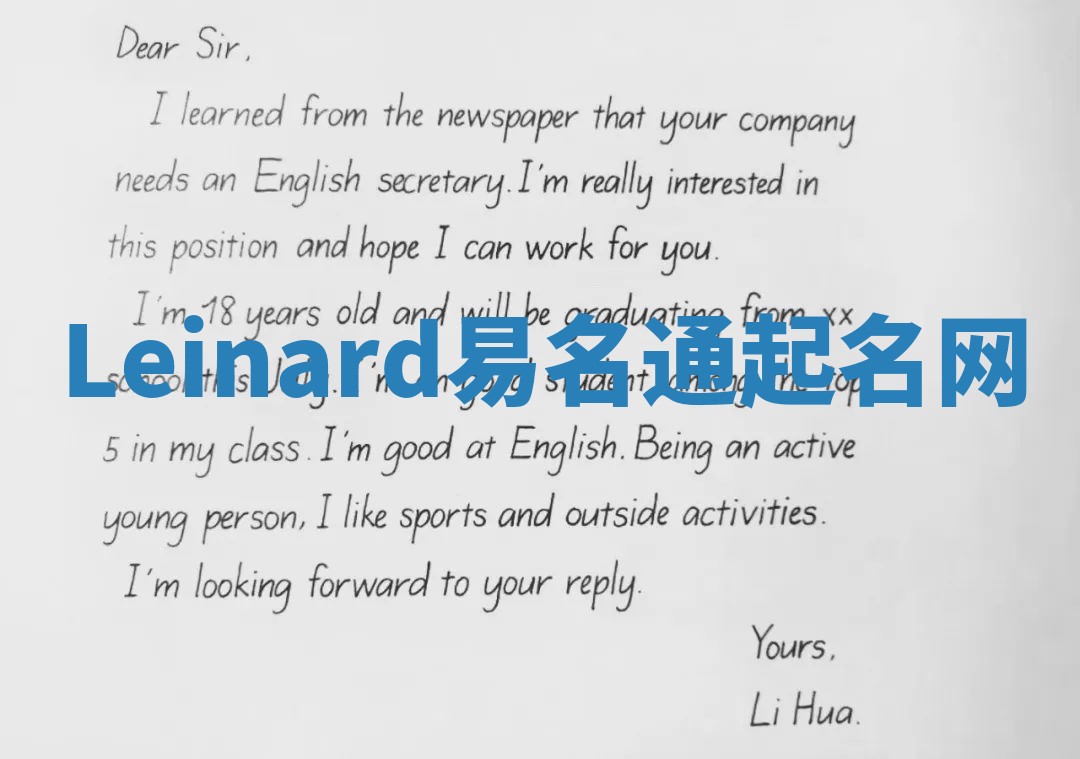 Dear Sir,
I learned from the newspaper that your company
needs an English secretary. I'm really interested in
this position and hope I can work for you.
I'm 18 years old and will be graduating from xx
Leinard易名通起名网
school this July. I'm student among the top
5 in my class. I'm good at English. Being an active
young person, I like sports and outside activities.
I'm looking forward to your reply.
Yours,
Li Hua.